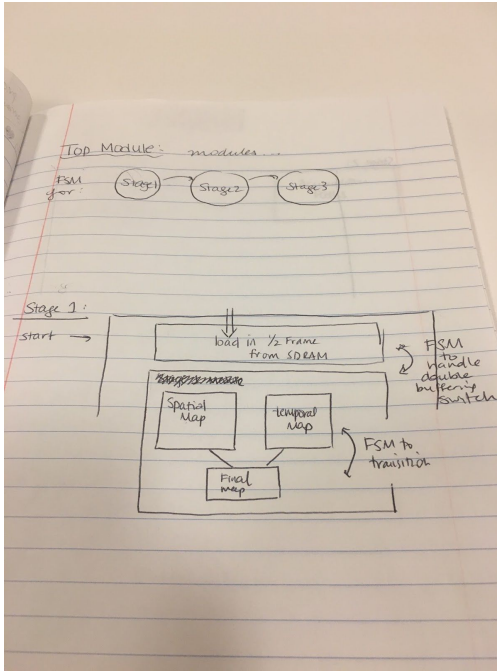 Top Module: modules...
FSM for:
Stage1
Stage2
Stage3
Stage 1:
start
load in 1/2 Frame
from SDRAM
FSM
to
handle
double
buffering
switch
Spatial
Map
temporal
Map
FSM to
transition
Final
map